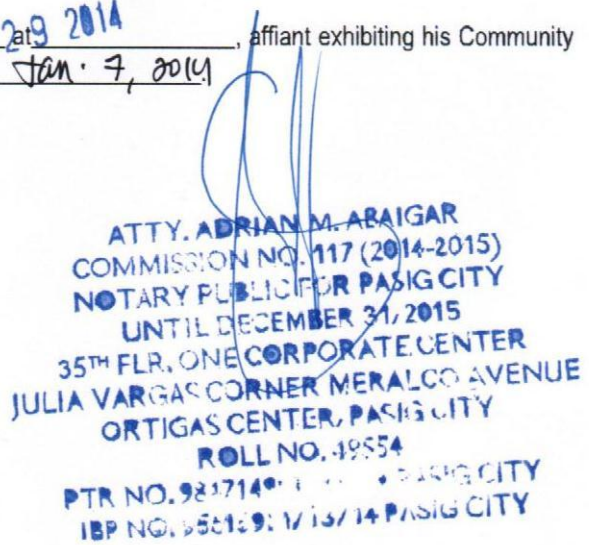 29 2014 at , affiant exhibiting his Community
Jan. 7, 2014
ATTY. ADRIAN M. ABAIGAR
COMMISSION NO. 117 (2014-2015)
NOTARY PUBLIC FOR PASIG CITY
UNTIL DECEMBER 31, 2015
35TH FLR. ONE CORPORATE CENTER
JULIA VARGAS CORNER MERALCO AVENUE
ORTIGAS CENTER, PASIG CITY
ROLL NO. 49554
PTR NO. PASIG CITY
IBP NO. 1/13/14 PASIG CITY